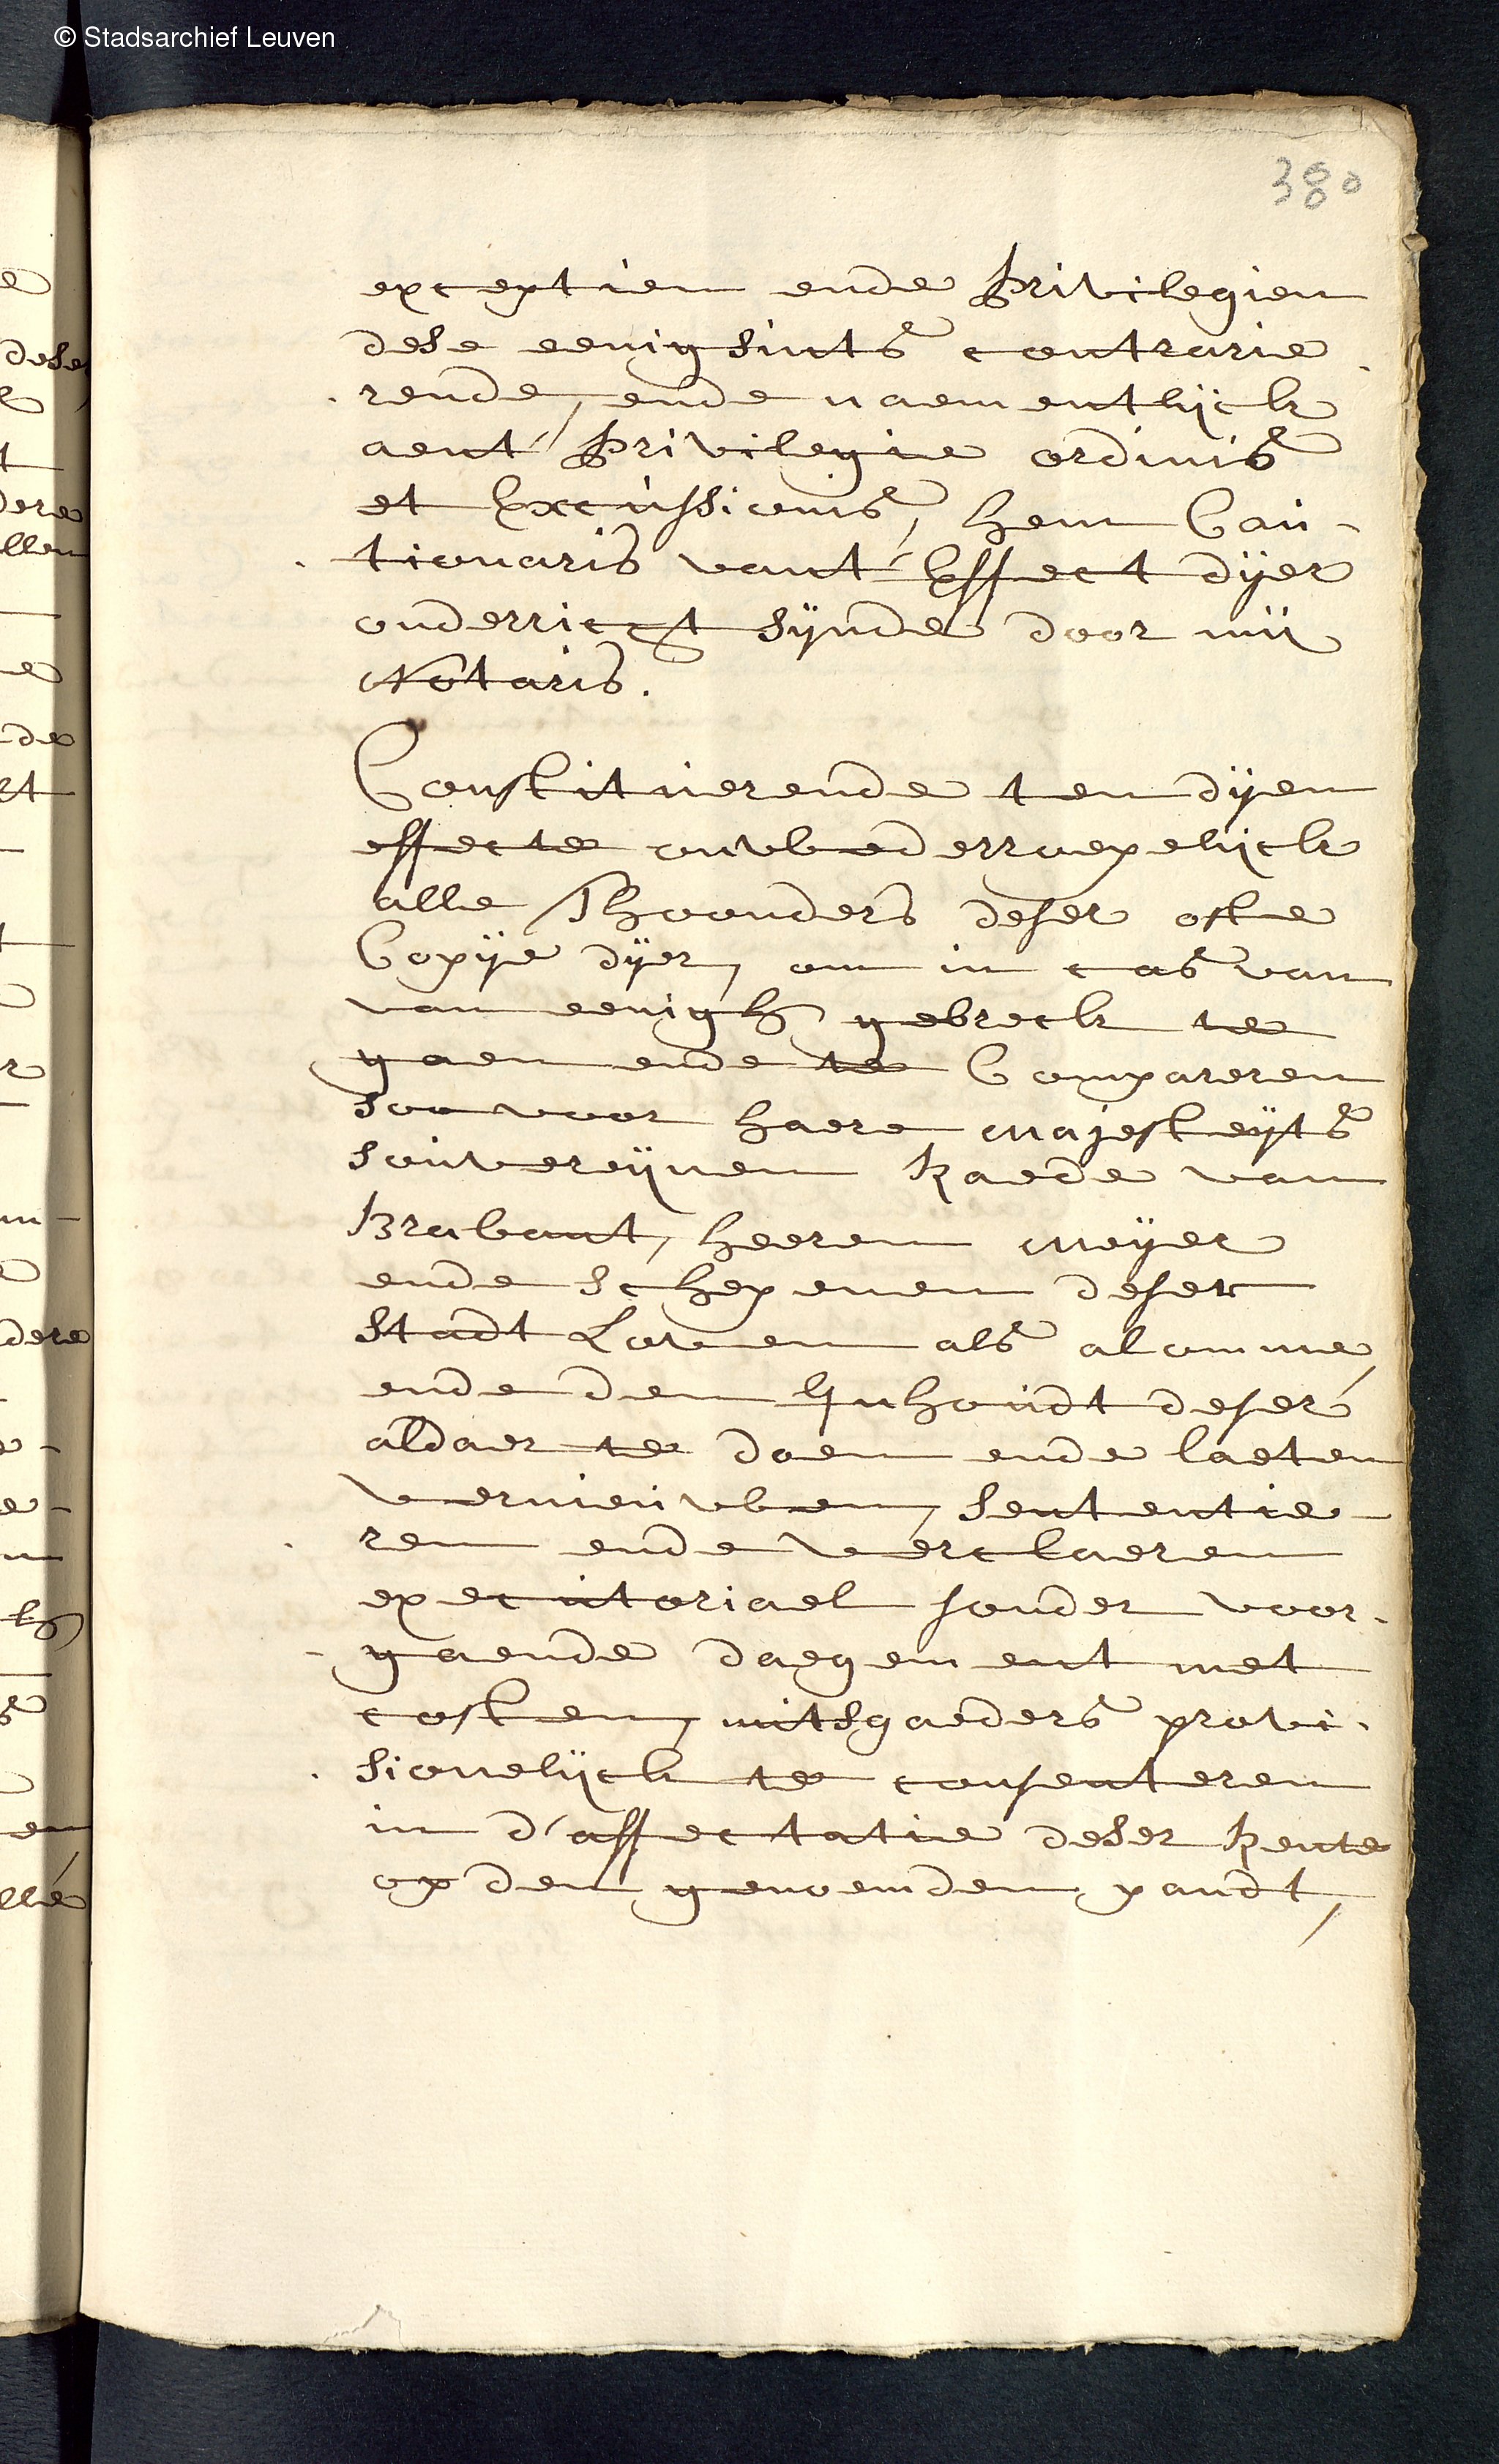 © Stadsarchief Leuven
380
exceptien ende privilegien
dese eenigsints contrarie
rende, ende naementlijck
aent' privilegie ordinis
et Excussionis, hem Cau-
tionaris vant' Effect dijer
onderricht sijnde door mij
Notaris.
Constituerende ten dijen
effecte onwederroepelijck
alle Thoonders deser ofte
Copije dijer, om in cas van
van eenigh gebreck te
gaen ende te Compareren
soo voor haere Majesteyts
souvereijnen Raede van
Brabant, heeren Meijer
ende schepenen deser
stadt Loven als alomme,
ende den Inhoudt deser
aldaer te doen ende laeten
vernieuwen, sententie-
ren ende verclaeren
executoriael sonder voor-
gaende daegement met
costen, mitsgaeders provi-
sionelijck te consenteren
in d'affectatie deser Rente
op den genoemden pandt,